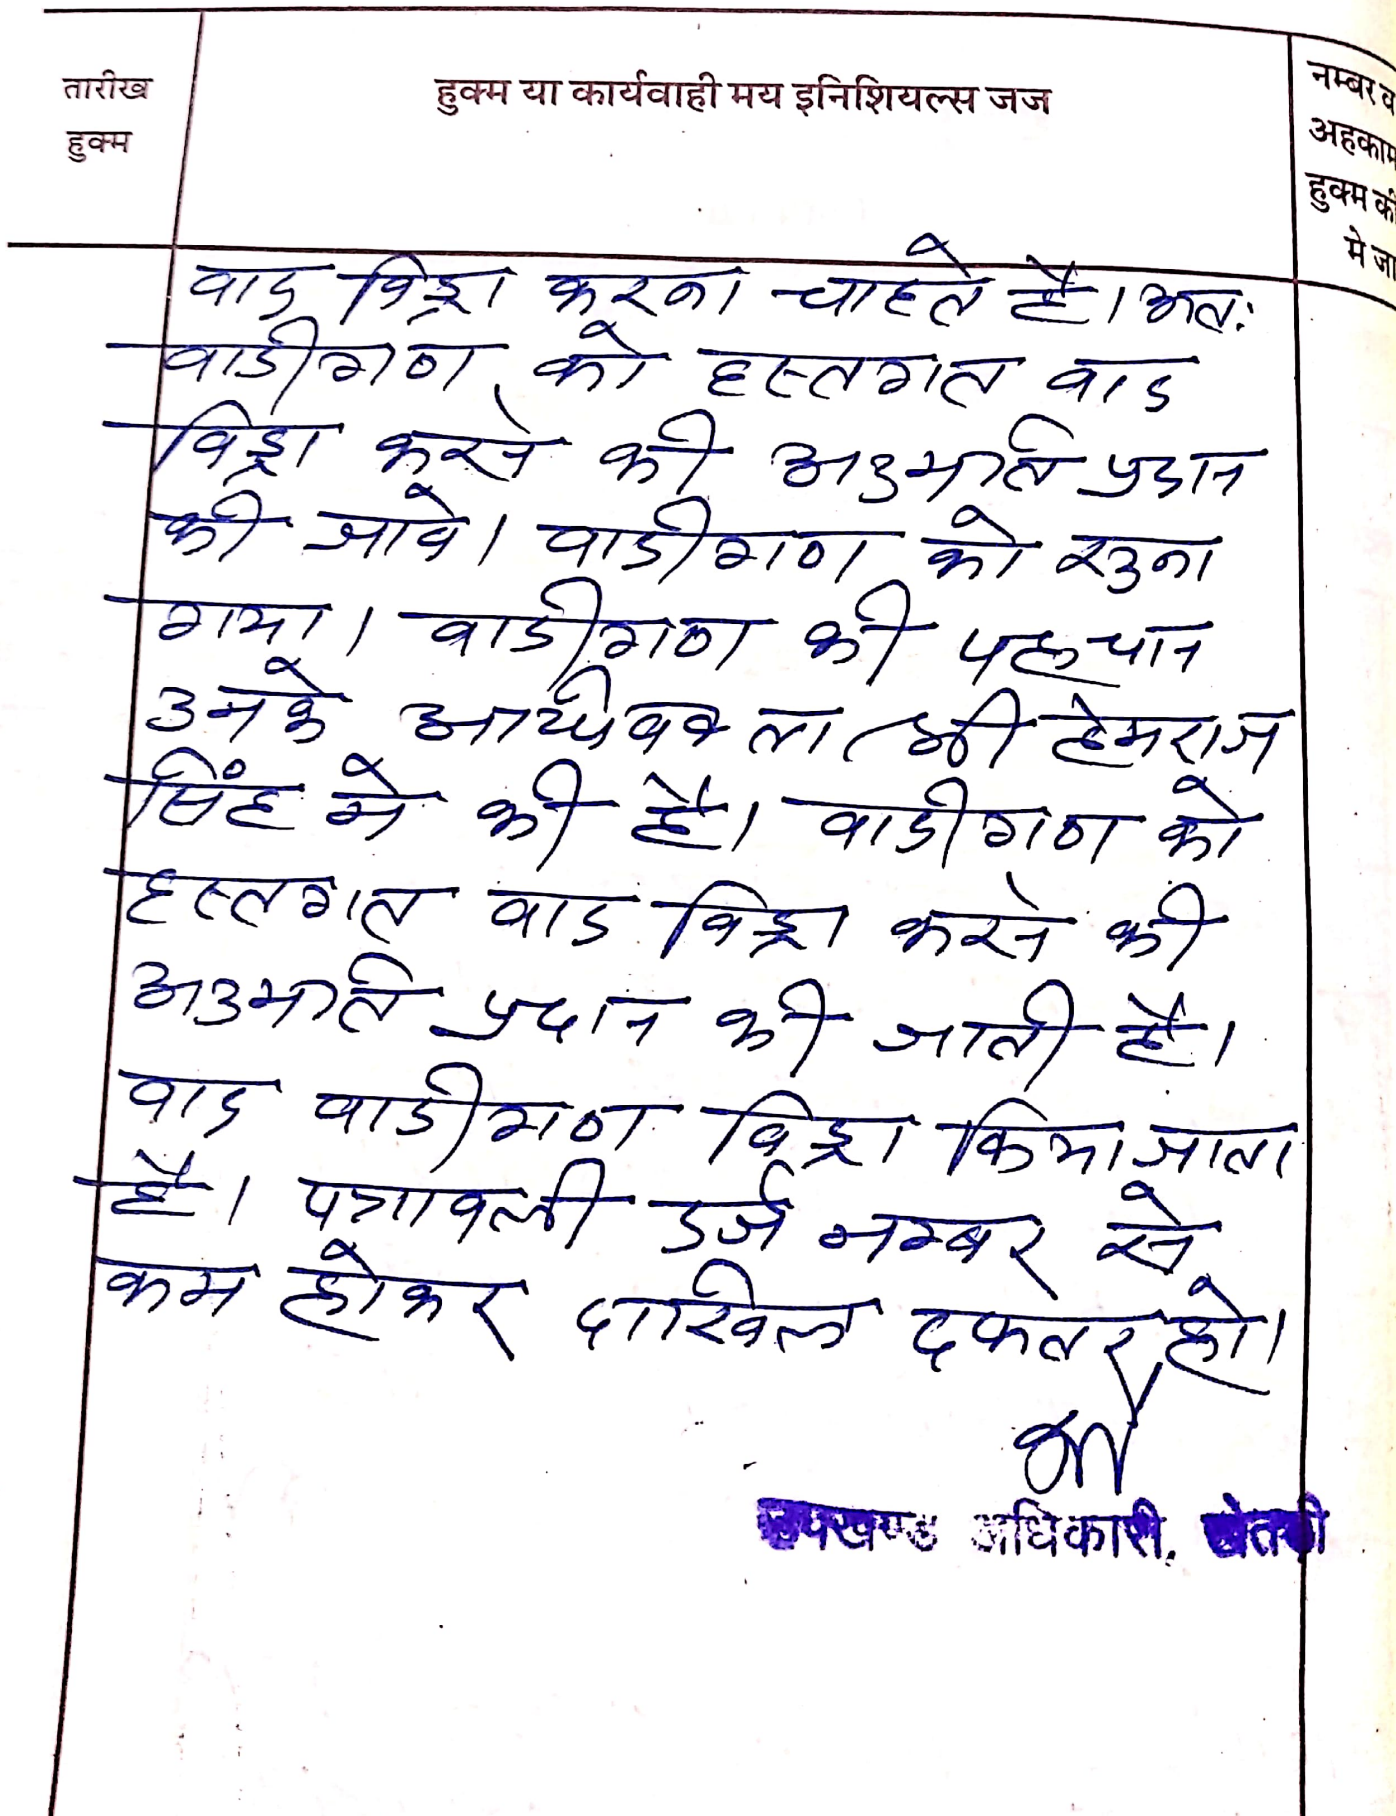 तारीख
हुक्म
हुक्म या कार्यवाही मय इनिशियल्स जज
नम्बर व
अहकाम
हुक्म की
मे जा
वाद विड्रा करना चाहते है। अतः
वादीगण को हस्तगत वाद
विड्रा करने की अनुमति प्रदान
की जावे। वादीगण को सुना
गया। वादीगण की पहचान
उनके अधिवक्ता श्री हेमराज
सिंह ने की है। वादीगण को
हस्तगत वाद विड्रा करने की
अनुमति प्रदान की जाती है।
वाद वादीगण विड्रा किया जाता
है। पत्रावली दर्ज नम्बर से
कम होकर दाखिल दफ्तर हो।
उपखण्ड अधिकारी, खेतड़ी